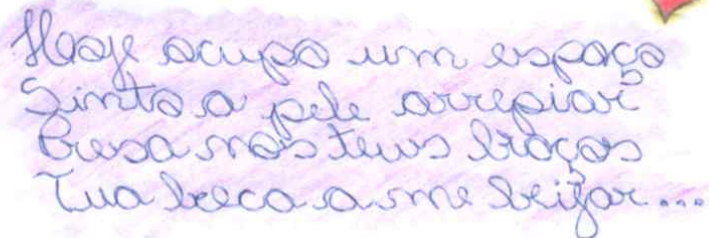 Hoje ocupo um espaço
Sinto a pele arrepiar
Presa nos teus braços
Tua boca a me beijar...